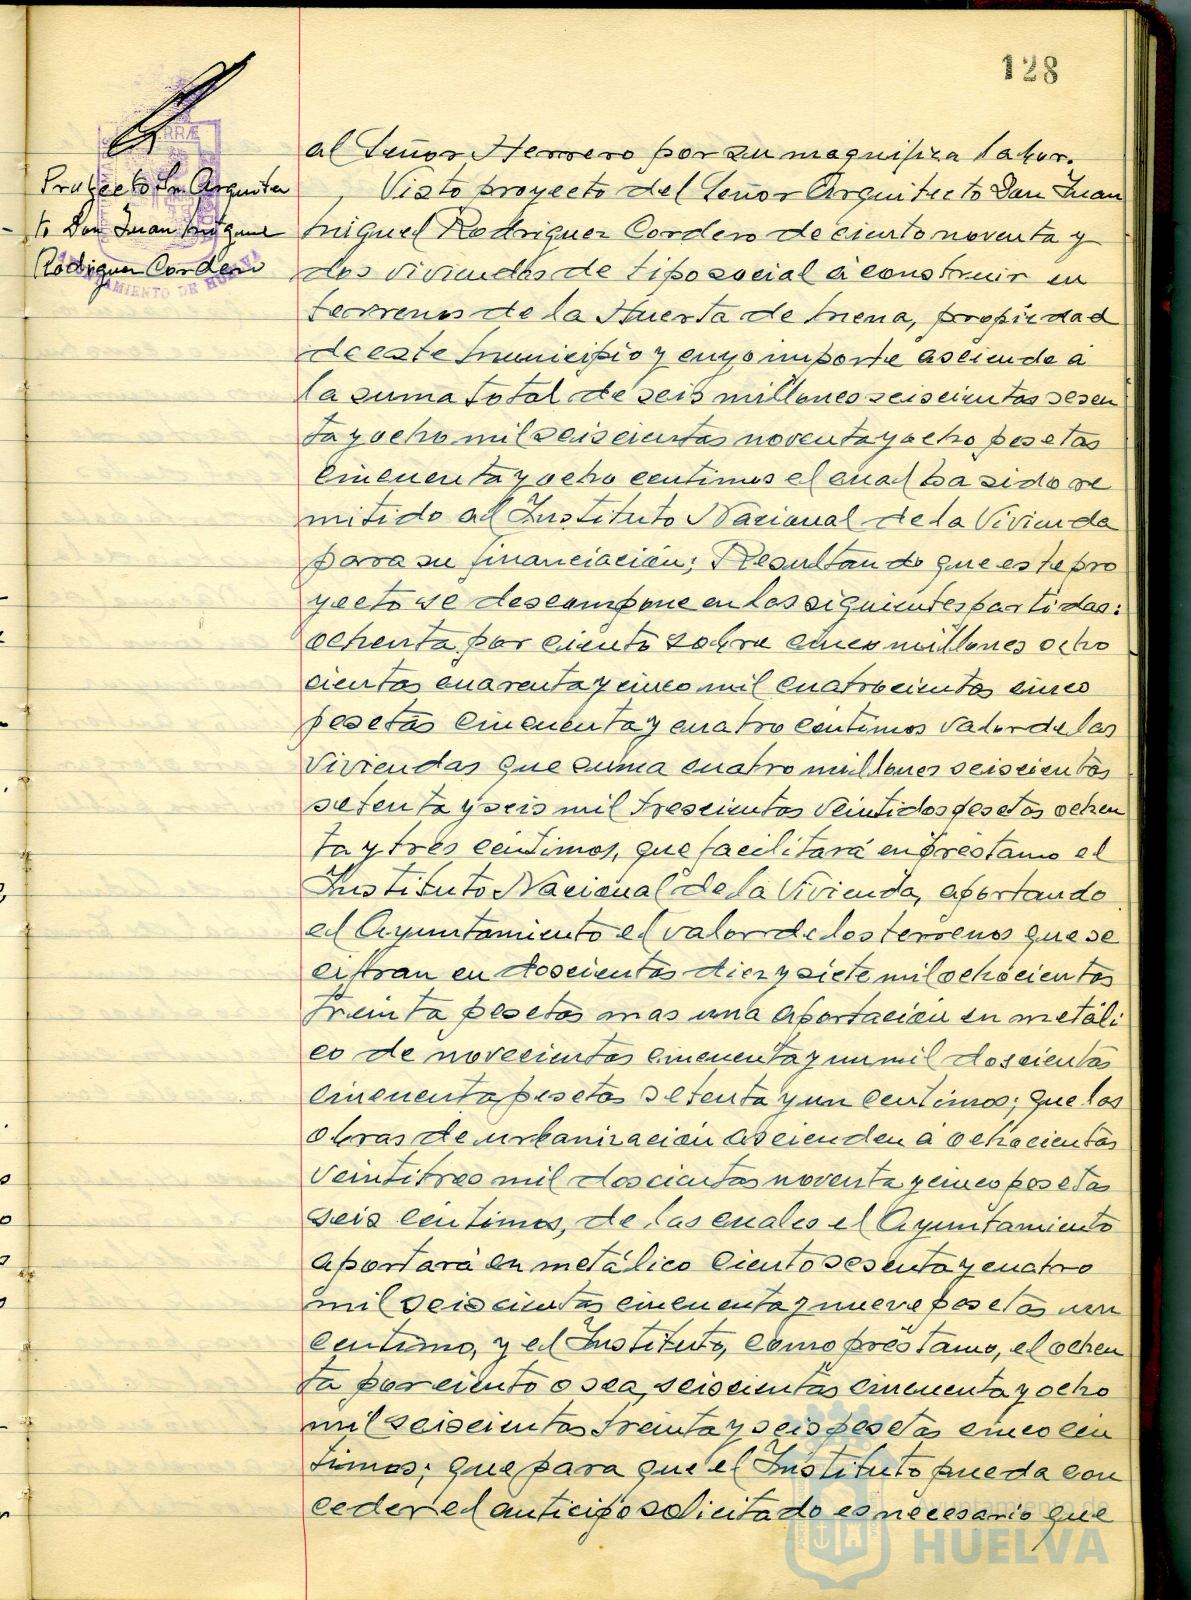 128
Proyecto Sr. Arquitec
to Don Juan Miguel
Rodriguez Cordero
AYUNTAMIENTO DE HUELVA
al Señor Herrero por su magnifica labor.
Visto proyecto del Señor Arquitecto Don Juan
Miguel Rodriguez Cordero de ciento noventa y
dos viviendas de tipo social á construir en
terrenos de la Huerta de Mena, propiedad
de este Municipio y cuyo importe asciende á
la suma total de seis millones seiscientas sesen
ta y ocho mil seiscientas noventa y ocho pesetas
cincuenta y ocho centimos el cual ha sido re
mitido al Instituto Nacional de la Vivienda
para su financiación; Resultando que este pro
yecto se descompone en las siguientes partidas:
ochenta por ciento sobre cinco millones ocho
cientas cuarenta y cinco mil cuatrocientas cinco
pesetas cincuenta y cuatro centimos valor de las
viviendas que suma cuatro millones seiscientas
setenta y seis mil trescientas veintidos pesetas ochen
ta y tres céntimos, que facilitará en préstamo el
Instituto Nacional de la Vivienda, aportando
el Ayuntamiento el valor de los terrenos que se
cifran en doscientas diez y siete mil ochocientas
treinta pesetas mas una aportación en metáli
co de novecientas cincuenta y un mil doscientas
cincuenta pesetas setenta y un centimos; que las
obras de urbanización ascienden á ochocientas
veintitres mil doscientas noventa y cinco pesetas
seis céntimos, de las cuales el Ayuntamiento
aportará en metálico ciento sesenta y cuatro
mil seiscientas cincuenta y nueve pesetas un
centimo, y el Instituto, como préstamo, el ochen
ta por ciento o sea, seiscientas cincuenta y ocho
mil seiscientas treinta y seis pesetas cinco cén
timos; que para que el Instituto pueda con
ceder el anticipo solicitado es necesario que
Ayuntamiento de
HUELVA